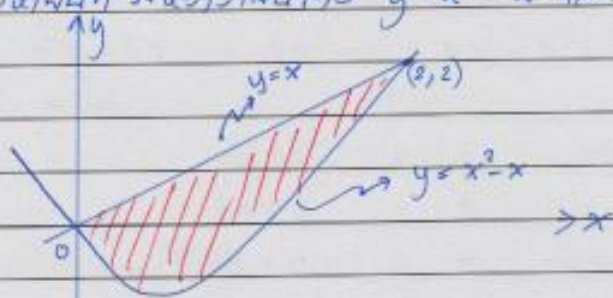 y
y=x
(2,2)
y = x² - x
x
0